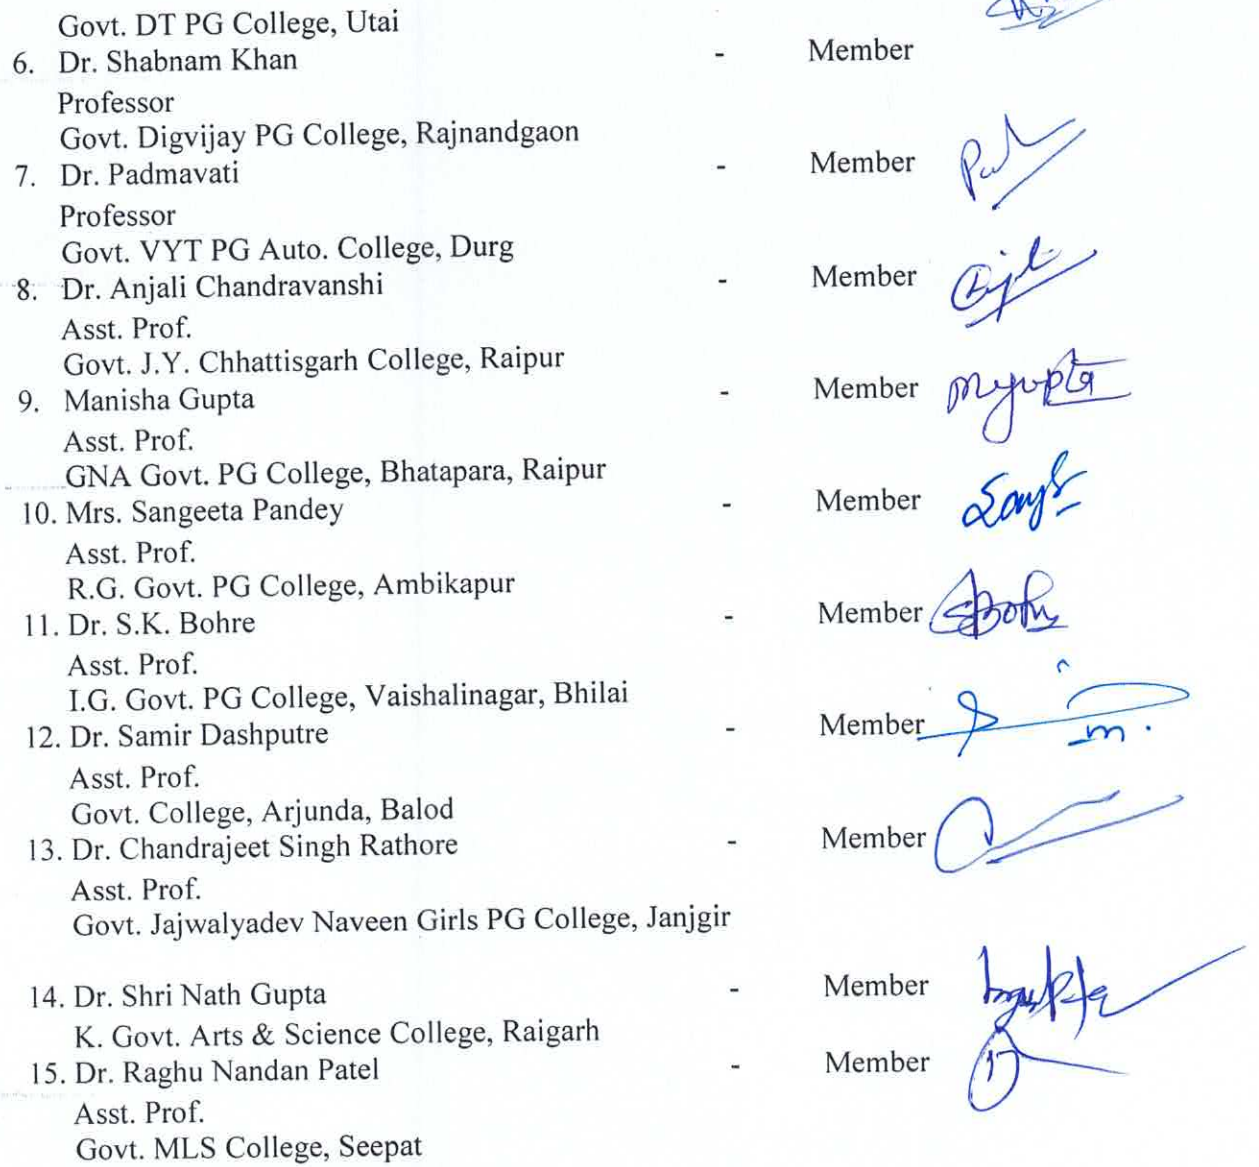 Govt. DT PG College, Utai
6. Dr. Shabnam Khan - Member
Professor
Govt. Digvijay PG College, Rajnandgaon
7. Dr. Padmavati - Member
Professor
Govt. VYT PG Auto. College, Durg
8. Dr. Anjali Chandravanshi - Member
Asst. Prof.
Govt. J.Y. Chhattisgarh College, Raipur
9. Manisha Gupta - Member Mgupta
Asst. Prof.
GNA Govt. PG College, Bhatapara, Raipur
10. Mrs. Sangeeta Pandey - Member
Asst. Prof.
R.G. Govt. PG College, Ambikapur
11. Dr. S.K. Bohre - Member
Asst. Prof.
I.G. Govt. PG College, Vaishalinagar, Bhilai
12. Dr. Samir Dashputre - Member
Asst. Prof.
Govt. College, Arjunda, Balod
13. Dr. Chandrajeet Singh Rathore - Member
Asst. Prof.
Govt. Jajwalyadev Naveen Girls PG College, Janjgir
14. Dr. Shri Nath Gupta - Member
K. Govt. Arts & Science College, Raigarh
15. Dr. Raghu Nandan Patel - Member
Asst. Prof.
Govt. MLS College, Seepat